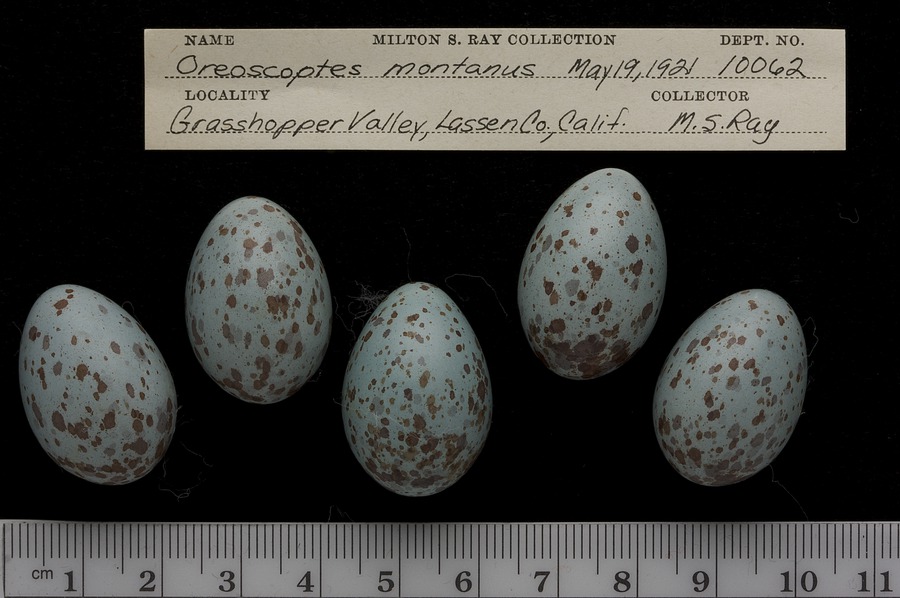 NAME MILTON S. RAY COLLECTION DEPT. NO.
Oreoscoptes montanus May 19, 1921 10062
LOCALITY COLLECTOR
Grasshopper Valley, Lassen Co., Calif. M. S. Ray
cm 1 2 3 4 5 6 7 8 9 10 11